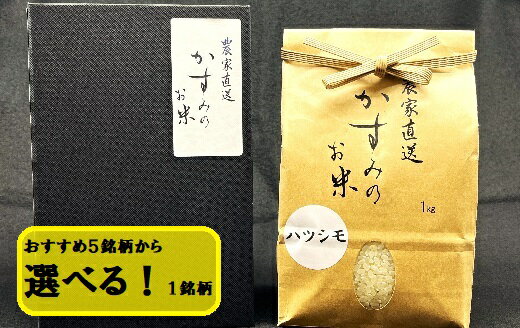 農家直送
かすみの
お米
農家直送
かすみの
お米
1kg
ハツシモ
おすすめ5銘柄から
選べる！ 1銘柄